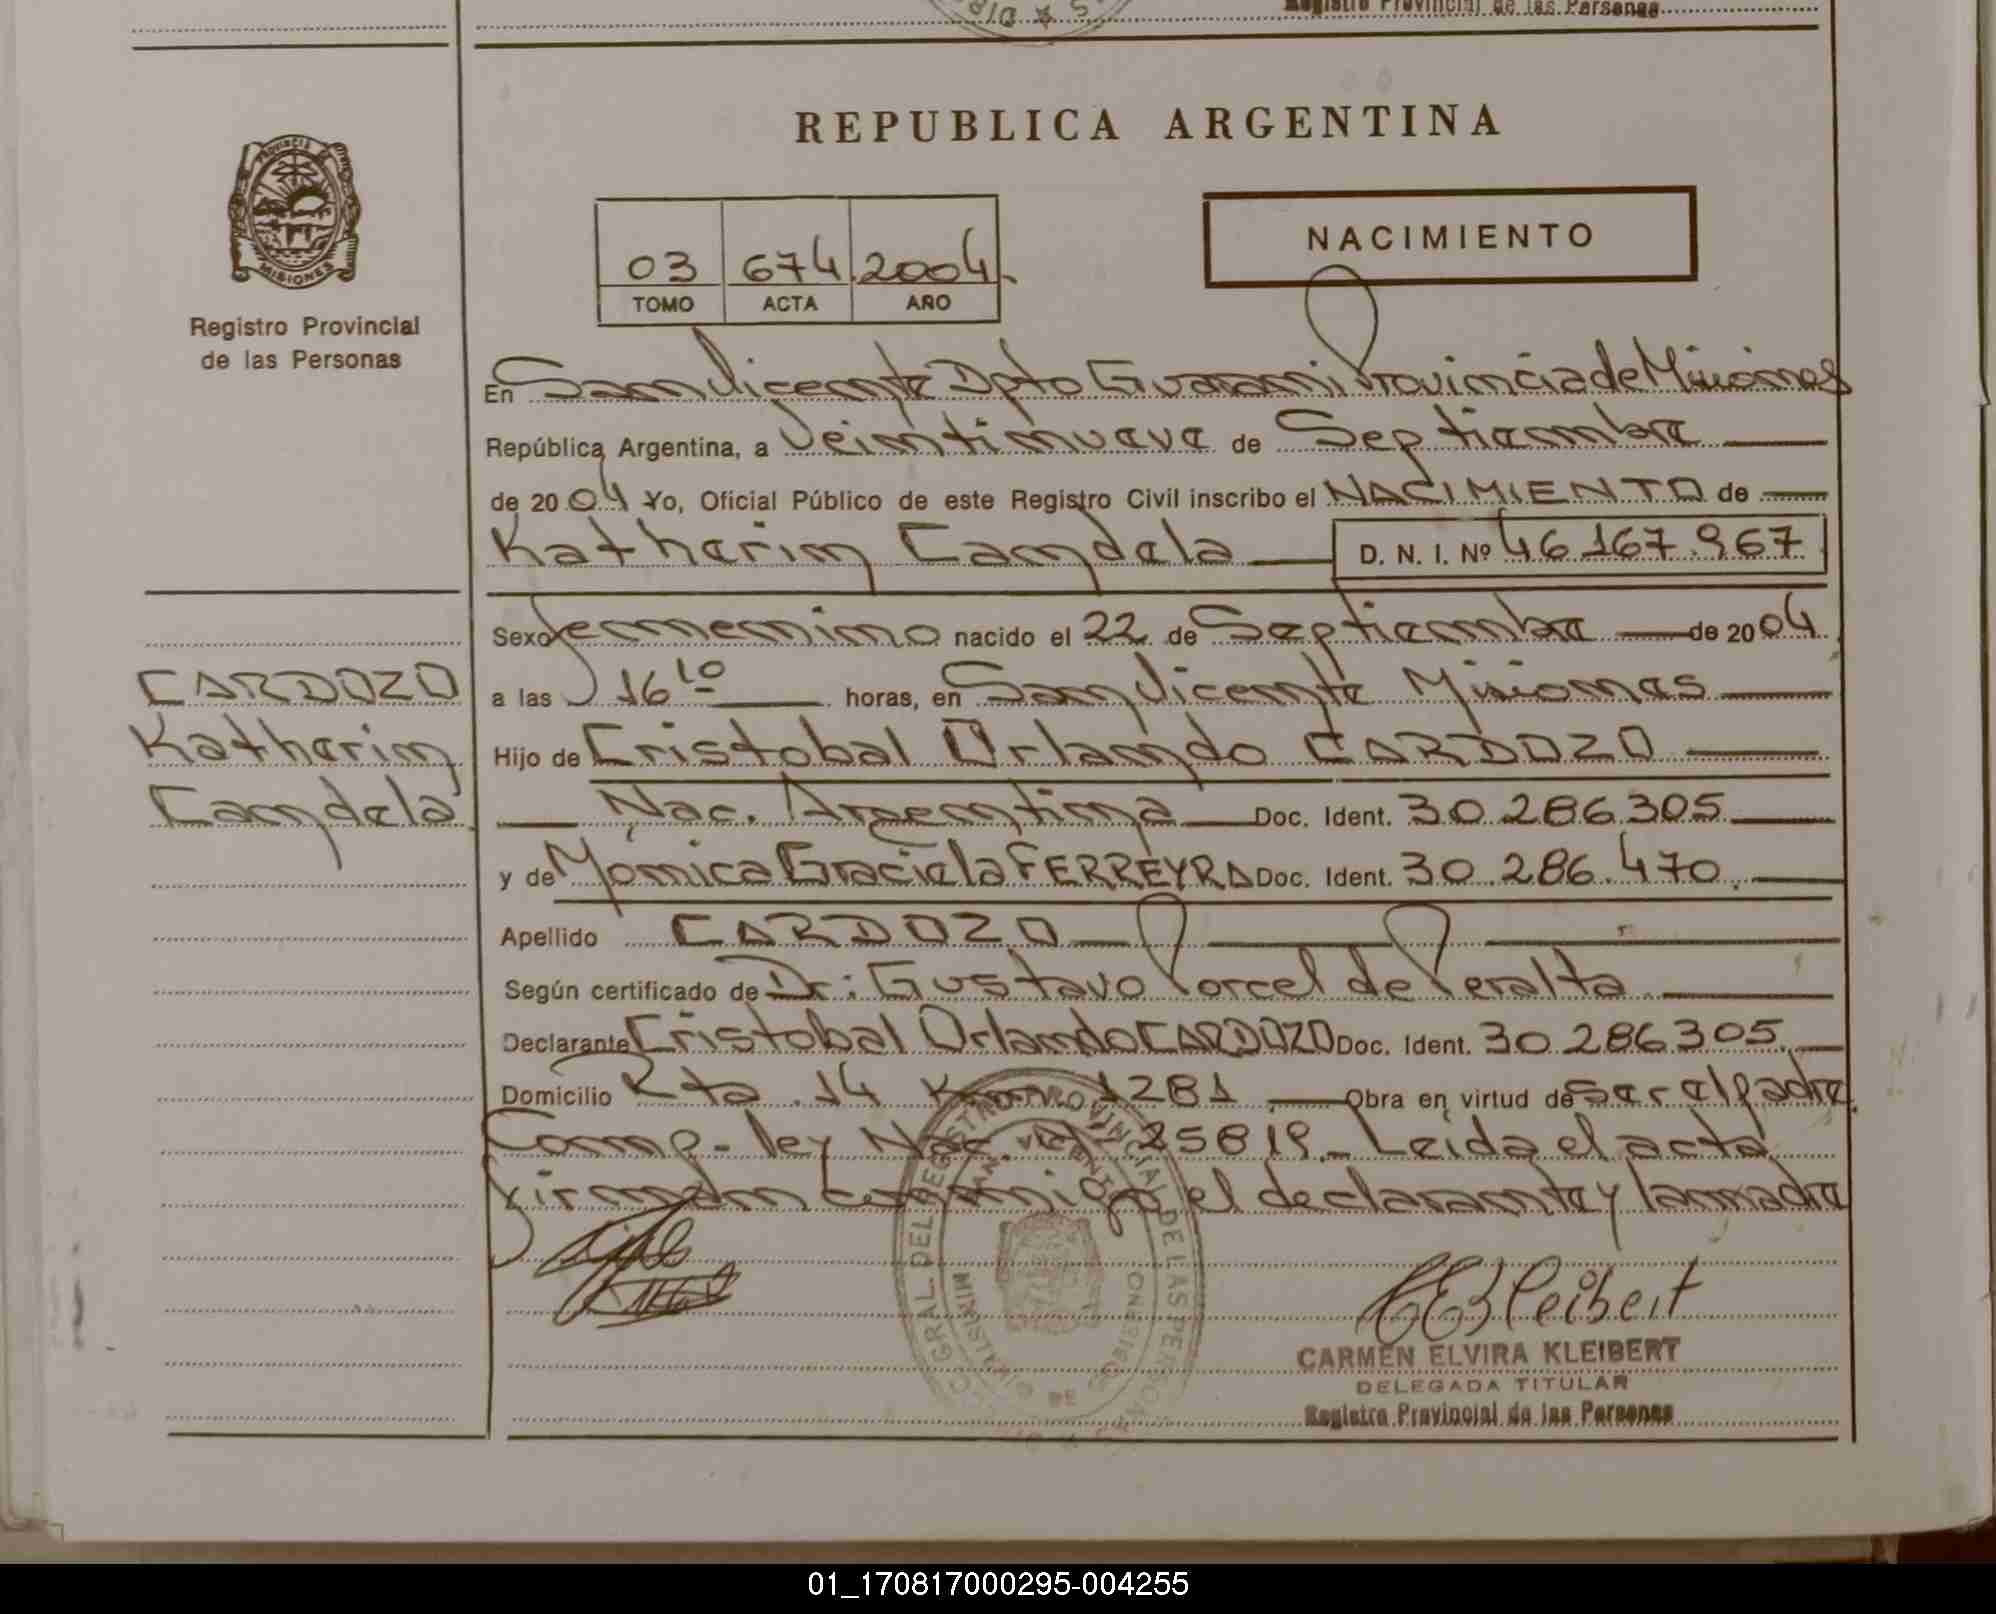 Registro Provincial de las Personas
REPUBLICA ARGENTINA
PROVINCIA DE
MISIONES
Registro Provincial
de las Personas
NACIMIENTO
03 674 2004
TOMO ACTA AÑO
En San Vicente Dpto Guarani Provincia de Misiones
República Argentina, a Veintinueve de Septiembre
de 2004 Yo, Oficial Público de este Registro Civil inscribo el NACIMIENTO de
Katherin Candela D. N. I. Nº 46.167.967
Sexo femenino nacido el 22 de Septiembre de 2004
a las 16 10 horas, en San Vicente Misiones
Hijo de Cristobal Orlando CARDOZO
Nac. Argentina Doc. Ident. 30.286.305
y de Monica Graciela FERREYRA Doc. Ident. 30.286.470
Apellido CARDOZO
Según certificado de Dr: Gustavo Porcel de Peralta
Declarante Cristobal Orlando CARDOZO Doc. Ident. 30.286.305
Domicilio Rta. 14 Km 1281 Obra en virtud de ser el padre
Comp. ley Nac. Nº 25819. Leida el acta
firman conmigo el declarante y la madre
CARDOZO
Katherin
Candela
CEKleibert
CARMEN ELVIRA KLEIBERT
DELEGADA TITULAR
Registro Provincial de las Personas
01_170817000295-004255